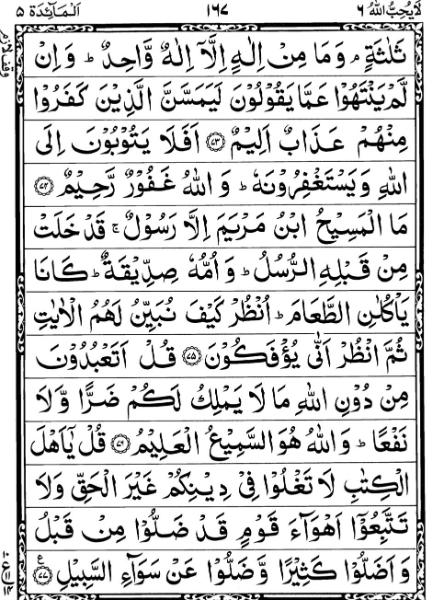 لَا يُحِبُّ اللّٰهُ ٦
١٦٧
اَلْمَآئِدَة ٥
ثَلٰثَةٍ ۘ وَمَا مِنْ اِلٰهٍ اِلَّاۤ اِلٰهٌ وَّاحِدٌ ؕ وَاِنْ
لَّمْ يَنْتَهُوْا عَمَّا يَقُوْلُوْنَ لَيَمَسَّنَّ الَّذِيْنَ كَفَرُوْا
مِنْهُمْ عَذَابٌ اَلِيْمٌ ﴿٧٣﴾ اَفَلَا يَتُوْبُوْنَ اِلَى
اللّٰهِ وَيَسْتَغْفِرُوْنَهٗ ؕ وَاللّٰهُ غَفُوْرٌ رَّحِيْمٌ ﴿٧٤﴾
مَا الْمَسِيْحُ ابْنُ مَرْيَمَ اِلَّا رَسُوْلٌ ۚ قَدْ خَلَتْ
مِنْ قَبْلِهِ الرُّسُلُ ؕ وَاُمُّهٗ صِدِّيْقَةٌ ؕ كَانَا
يَاْكُلٰنِ الطَّعَامَ ؕ اُنْظُرْ كَيْفَ نُبَيِّنُ لَهُمُ الْاٰيٰتِ
ثُمَّ انْظُرْ اَنّٰى يُؤْفَكُوْنَ ﴿٧٥﴾ قُلْ اَتَعْبُدُوْنَ
مِنْ دُوْنِ اللّٰهِ مَا لَا يَمْلِكُ لَكُمْ ضَرًّا وَّلَا
نَفْعًا ؕ وَاللّٰهُ هُوَ السَّمِيْعُ الْعَلِيْمُ ﴿٧٦﴾ قُلْ يٰۤاَهْلَ
الْكِتٰبِ لَا تَغْلُوْا فِيْ دِيْنِكُمْ غَيْرَ الْحَقِّ وَلَا
تَتَّبِعُوْۤا اَهْوَآءَ قَوْمٍ قَدْ ضَلُّوْا مِنْ قَبْلُ
وَاَضَلُّوْا كَثِيْرًا وَّضَلُّوْا عَنْ سَوَآءِ السَّبِيْلِ ﴿٧٧﴾ ع
وقف لازم
١٠
ع ١١
١٤